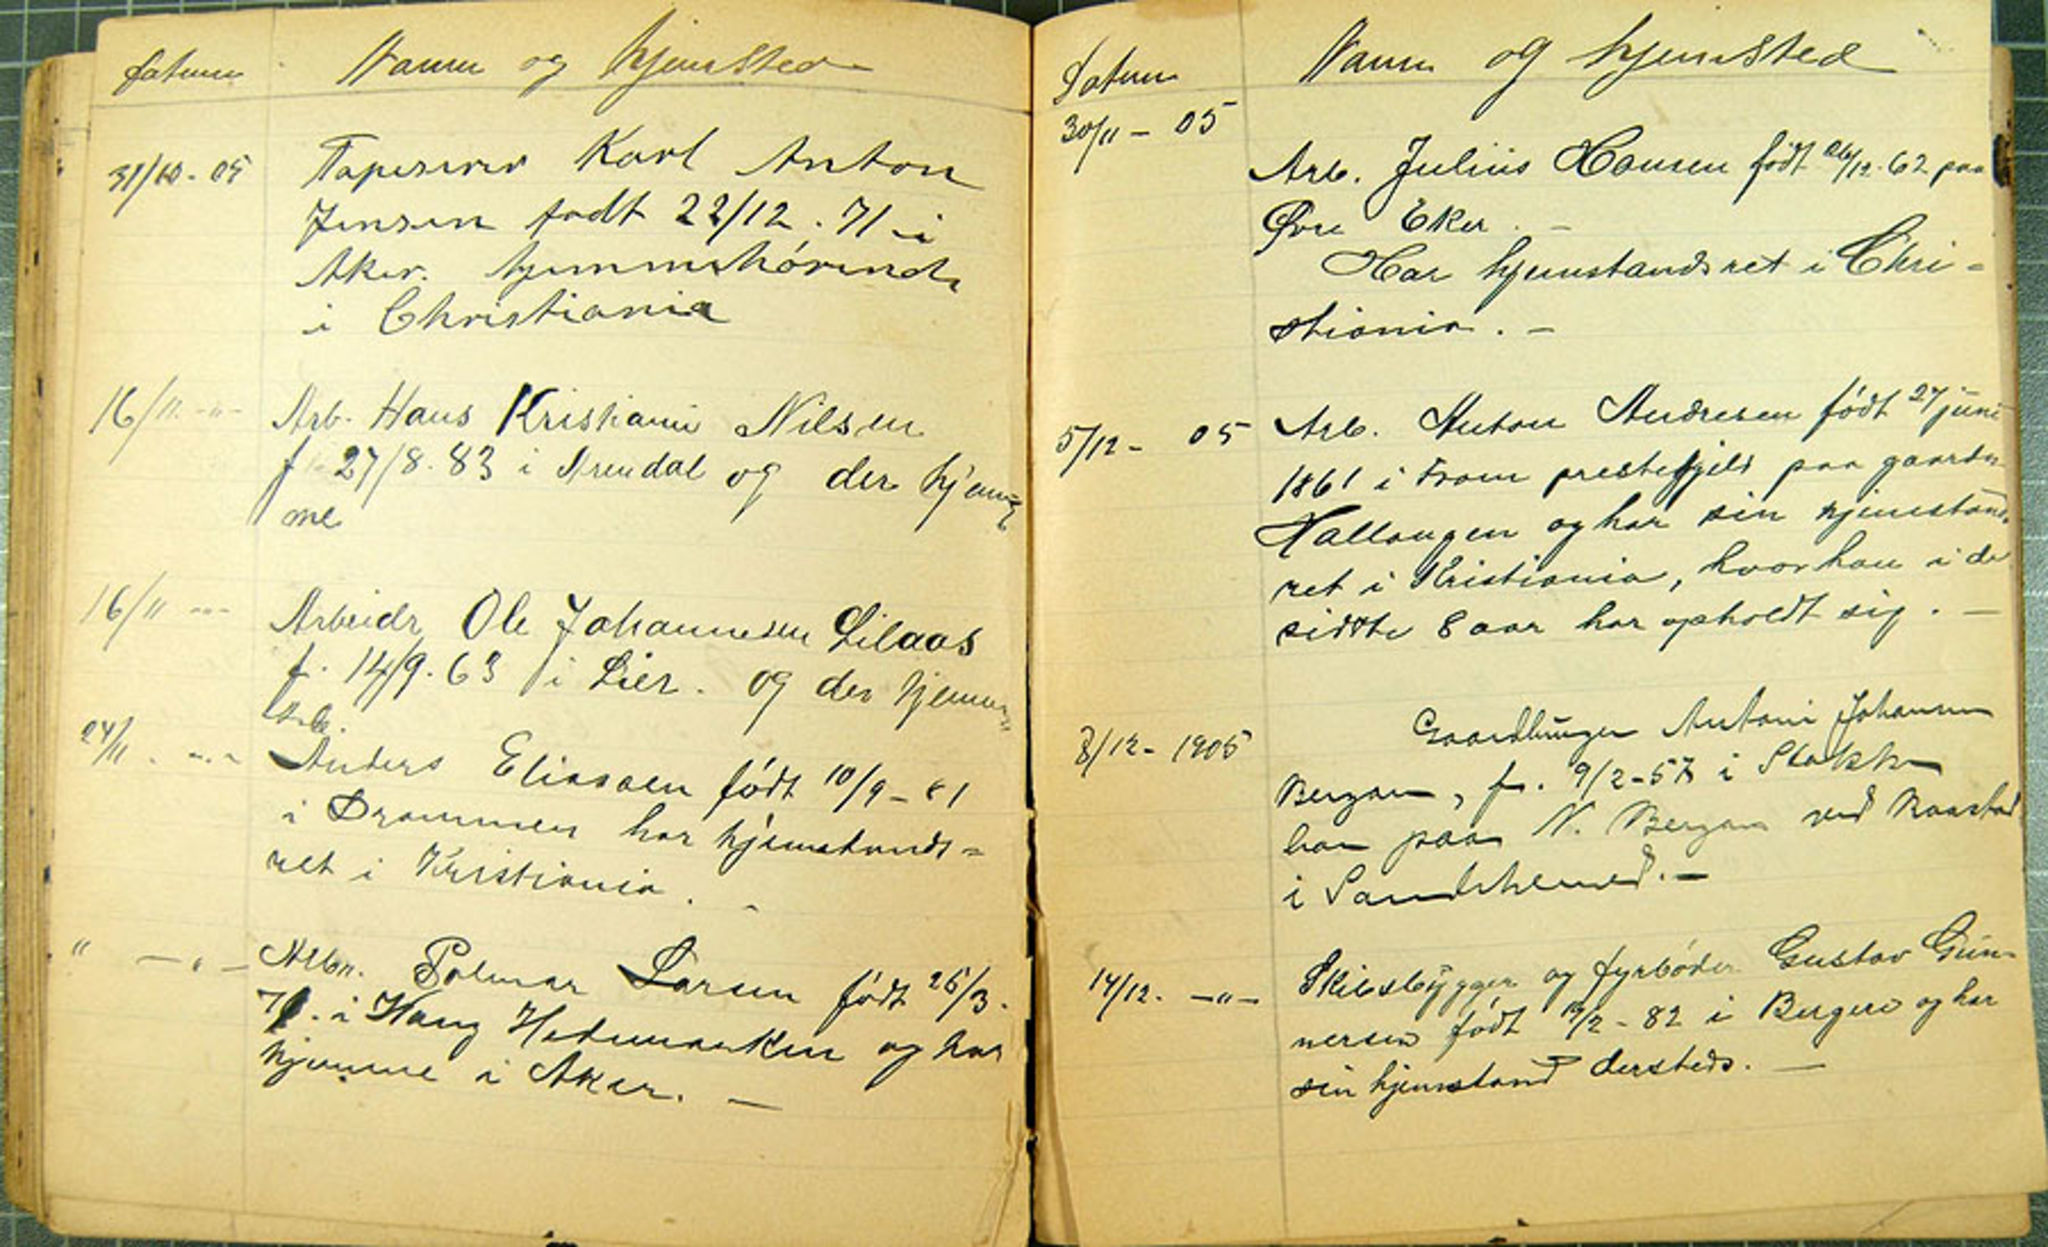 Datum Navn og hjemsted
31/10-05 Tapeserer Karl Anton
Jensen født 22/12.71 i
Aker. hjemmehørende
i Christiania
16/11 -"- Arb. Hans Kristian Nilsen
f 27/8.83 i Arendal og der hjem=
me
16/11 -"- Arbeidr Ole Johannesen Lilaas
f. 14/9.63 i Lier. og der hjemme
Arb.
24/11. -"- Anders Eliasen født 10/9-81
i Drammen har hjemstands=
ret i Kristiania.
" -"- Arb. Larsen født 26/3.
i Vang Hedemarken og har
hjemme i Aker. —
Datum Navn og hjemsted
30/11 - 05
Arb. Julius Hansen født 26/12.62 paa
Øvre Eker. —
Har hjemstandsret i Chri=
stiania. —
5/12 - 05 Arb. Anton Andresen født 27 juni
1861 i prestegjeld paa gaarden
og har sin hjemstands
ret i Kristiania, hvor han i de
sidste 8 aar har opholdt sig. —
8/12 - 1905 Gaardbruger Anton Johannsen
Bergan, f. 9/2-57 i Stokke
paa N. Bergan ved Raastad
i Sandeherred. —
14/12. -"- Skibsbygger og fyrbøder Gustav Gun=
nersen født /2-82 i Bergen og har
sin hjemstand dersteds. —